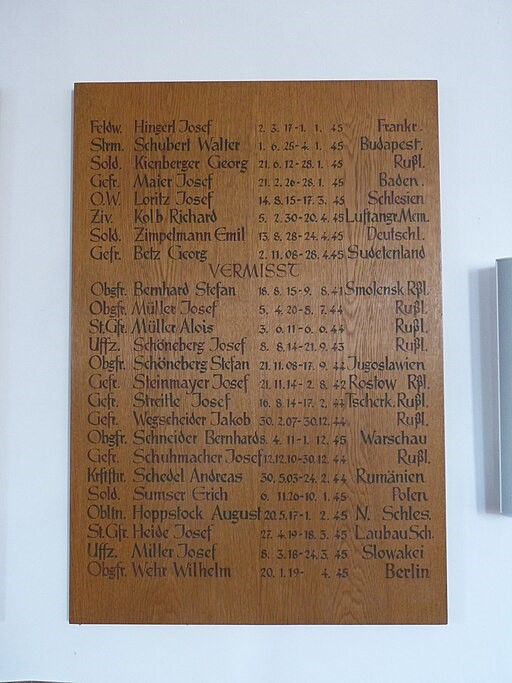 Feldw. Hingerl Josef 2. 3. 17-1. 1. 45 Frankr.
Strm. Schubert Walter 1. 6. 25-4. 1. 45 Budapest.
Sold. Kienberger Georg 21. 6. 12-28. 1. 45 Rußl.
Gefr. Maier Josef 21. 2. 26-28. 1. 45 Baden.
O.W. Loritz Josef 14. 8. 15-17. 3. 45 Schlesien
Ziv. Kolb Richard 5. 2. 30-20. 4. 45 Luftangr. Mem.
Sold. Zimpelmann Emil 13. 8. 28-24. 4. 45 Deutschl.
Gefr. Betz Georg 2. 11. 08-28. 4. 45 Sudetenland
VERMISST
Obgfr. Bernhard Stefan 18. 8. 15-9. 8. 41 Smolensk Rßl.
Obgfr. Müller Josef 5. 4. 20-8. 7. 44 Rußl.
St.Gfr. Müller Alois 3. 6. 11-6. 6. 44 Rußl.
Uffz. Schöneberg Josef 8. 8. 14-21. 9. 43 Rußl.
Obgfr. Schöneberg Stefan 21. 11. 08-17. 9. 44 Jugoslawien
Gefr. Steinmayer Josef 21. 11. 14-2. 8. 42 Rostow Rßl.
Gefr. Streitle Josef 16. 8. 14-17. 2. 44 Tscherk. Rußl.
Gefr. Wegscheider Jakob 30. 2. 07-30. 12. 44 Rußl.
Obgfr. Schneider Bernhard 8. 4. 11-1. 12. 45 Warschau
Gefr. Schuhmacher Josef 12. 12. 10-30. 12. 44 Rußl.
Krftftr. Schedel Andreas 30. 5. 03-24. 2. 44 Rumänien
Sold. Sumser Erich 6. 11. 26-10. 1. 45 Polen
Obltn. Hoppstock August 20. 5. 17-1. 2. 45 N. Schles.
St.Gfr. Heide Josef 27. 4. 19-18. 3. 45 Lauban Sch.
Uffz. Miller Josef 8. 3. 18-24. 3. 45 Slowakei
Obgfr. Wehr Wilhelm 20. 1. 19- 4. 45 Berlin